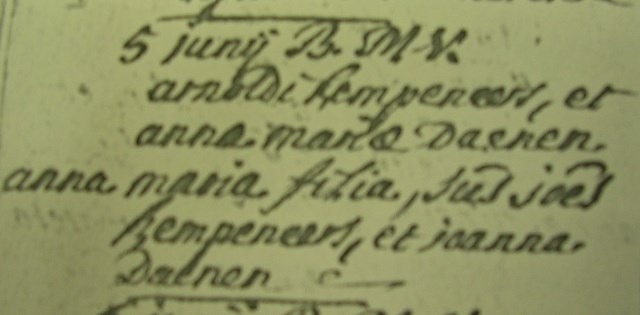 5 junij B. M. V.
arnoldi Kempeneers, et
anna mariæ Daenen.
anna maria filia, sus̄ joēs
Kempeneers, et joanna
Daenen